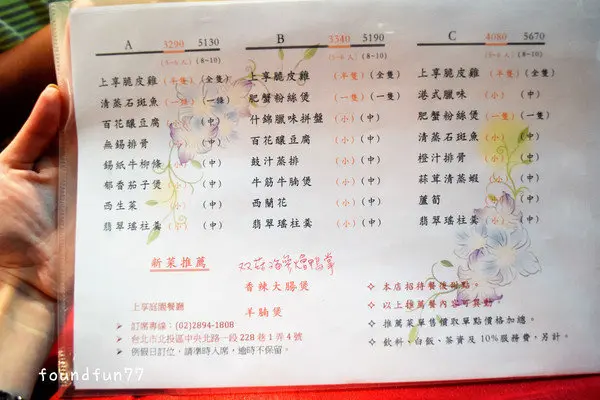 A 3290 5130
(5~6 人) (8~10)
上享脆皮雞 (半隻) (全隻)
清蒸石斑魚 (一條) (一條)
百花釀豆腐 (小) (中)
無錫排骨 (小) (中)
錫紙牛柳條 (小) (中)
郁香茄子煲 (小) (中)
西生菜 (小) (中)
翡翠瑤柱羹 (小) (中)
B 3340 5190
(5~6 人) (8~10)
上享脆皮雞 (半隻) (全隻)
肥蟹粉絲煲 (一隻) (一隻)
什錦臘味拼盤 (小) (中)
百花釀豆腐 (小) (中)
豉汁蒸排 (小) (中)
牛筋牛腩煲 (小) (中)
西蘭花 (小) (中)
翡翠瑤柱羹 (小) (中)
C 4080 5670
(5~6 人) (8~10)
上享脆皮雞 (半隻) (全隻)
港式臘味 (小) (中)
肥蟹粉絲煲 (一隻) (一隻)
清蒸石斑魚 (小) (中)
橙汁排骨 (小) (中)
蒜茸清蒸蝦 (小) (中)
蘆筍 (小) (中)
翡翠瑤柱羹 (小) (中)
新菜推薦 双菇海參燴鴨掌
香辣大腸煲
羊腩煲
上享庭園餐廳
➢ 訂席專線：(02)2894-1808
➢ 台北市北投區中央北路一段 228 巷 1 弄 4 號
➢ 例假日訂位，請準時入席，逾時不保留。
❖ 本店招待餐後甜點。
❖ 以上推薦餐內容可異動。
❖ 推薦菜單售價取單點價格加總。
❖ 飲料、白飯、茶資及 10%服務費，另計。
foundfun77